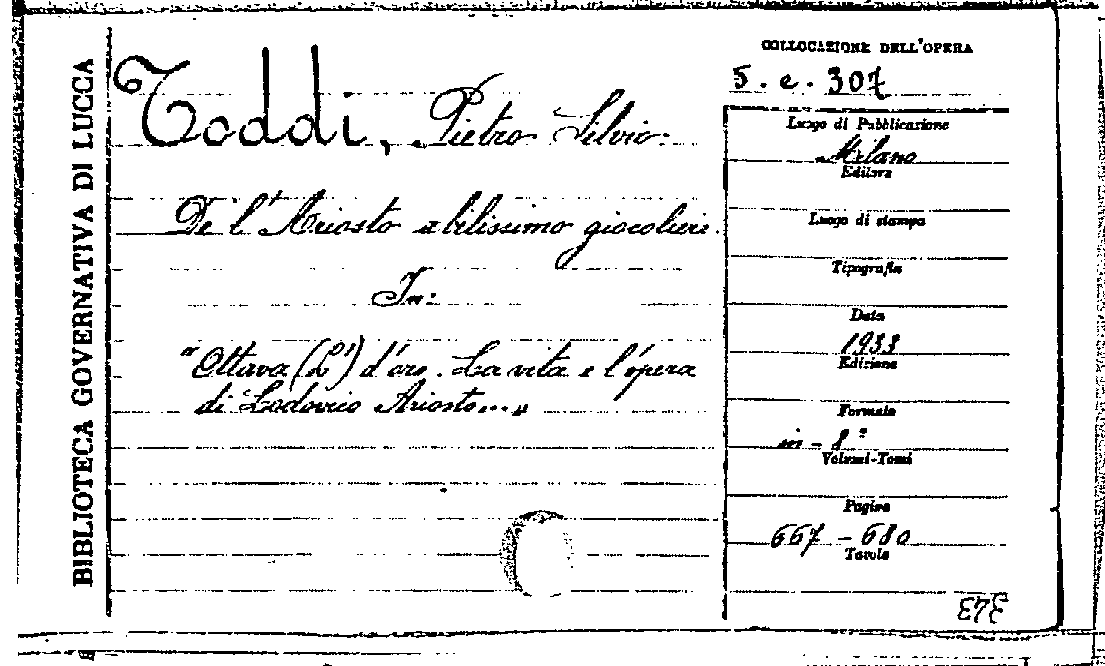 BIBLIOTECA GOVERNATIVA DI LUCCA
Toddi, Pietro Silvio.
De l'Ariosto abilissimo giocoliere.
In:
"Ottava (L') d'oro. La vita e l'opera
di Lodovico Ariosto..."
COLLOCAZIONE DELL'OPERA
5. e. 307
Luogo di Pubblicazione
Milano
Editore
Luogo di stampa
Tipografia
Data
1933
Edizione
Formato
in-8°
Volumi-Tomi
Pagine
667 - 680
Tavole